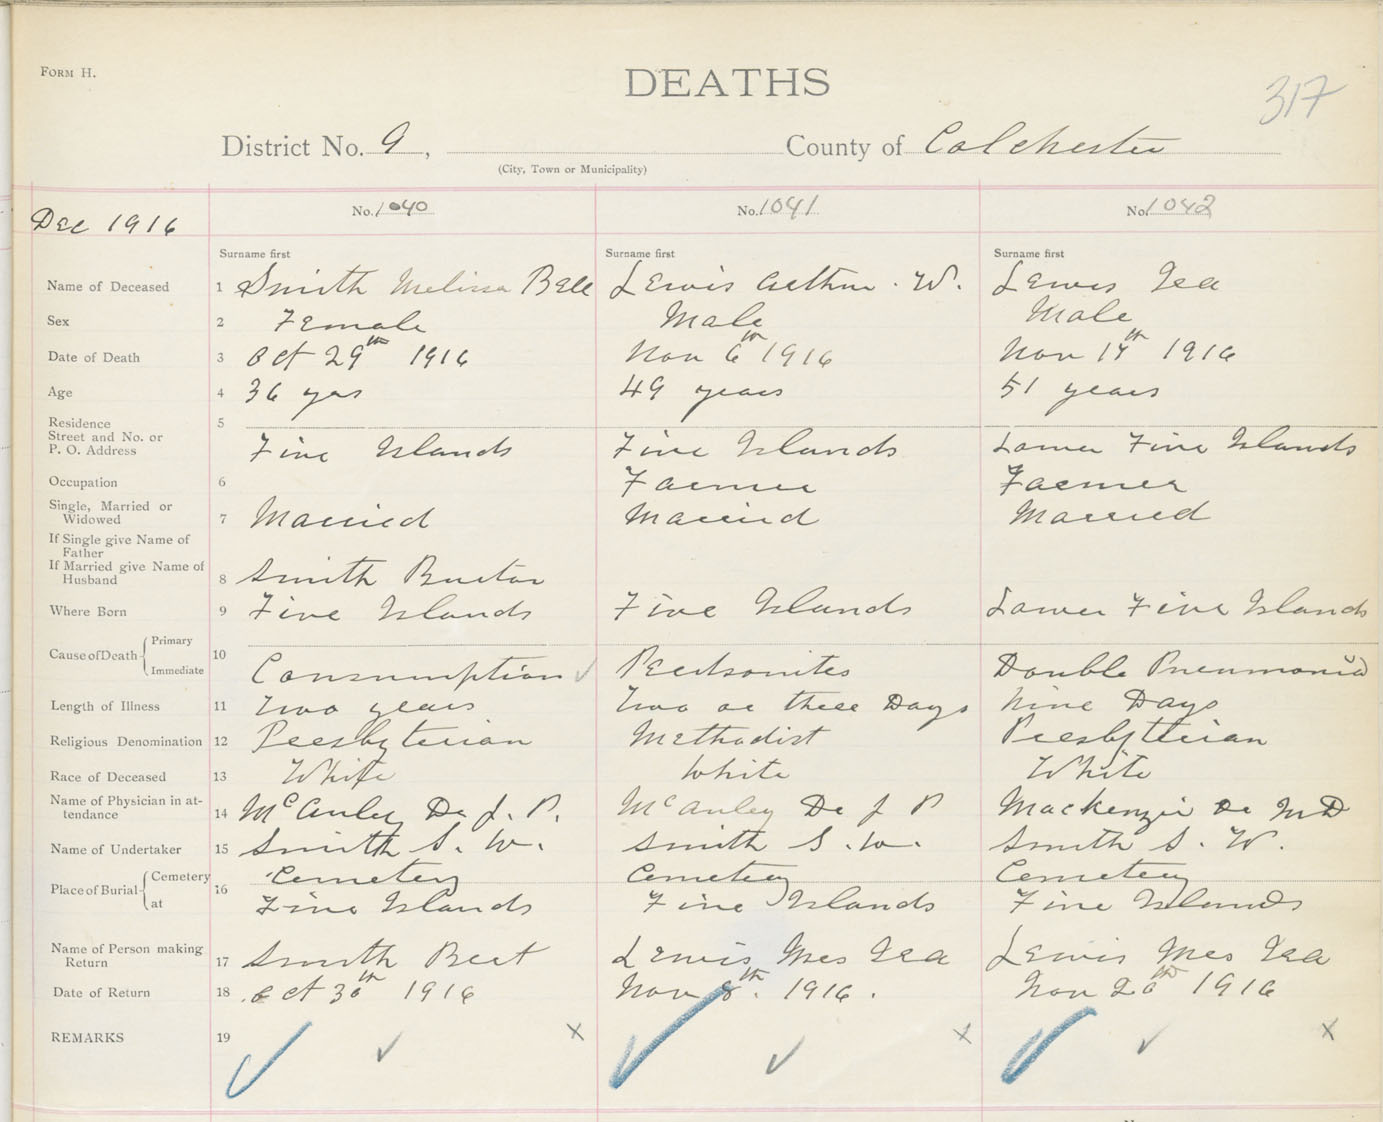 FORM H.
DEATHS
317
District No. 9, County of Colchester
(City, Town or Municipality)
Dec 1916
No. 1040 No. 1041 No. 1042
Surname first Surname first Surname first
Name of Deceased 1 Smith Melissa Bell Lewis Arthur . W. Lewis Ira
Sex 2 Female Male Male
Date of Death 3 Oct 29th 1916 Nov 6th 1916 Nov 17th 1916
Age 4 36 yrs 49 years 51 years
Residence 5
Street and No. or
P. O. Address Five Islands Five Islands Lower Five Islands
Occupation 6 Farmer Farmer
Single, Married or
Widowed 7 Married Married Married
If Single give Name of
Father
If Married give Name of
Husband 8 Smith Burton
Where Born 9 Five Islands Five Islands Lower Five Islands
Cause of Death { Primary 10
Immediate Consumption ✓ Double Pneumonia
Length of Illness 11 Two years Two or three Days Nine Days
Religious Denomination 12 Presbyterian Methodist Presbyterian
Race of Deceased 13 White White White
Name of Physician in at-
tendance 14 McAuley Dr J. P. McAuley Dr J P Mackenzie Dr M D
Name of Undertaker 15 Smith S. W. Smith S. W. Smith S. W.
Place of Burial { Cemetery 16 Cemetery Cemetery Cemetery
at Five Islands Five Islands Five Islands
Name of Person making
Return 17 Smith Bert Lewis Mrs Ira Lewis Mrs Ira
Date of Return 18 Oct 30th 1916 Nov 8th. 1916. Nov 20th 1916
REMARKS 19 ✓ ✓ x ✓ ✓ x ✓ ✓ x